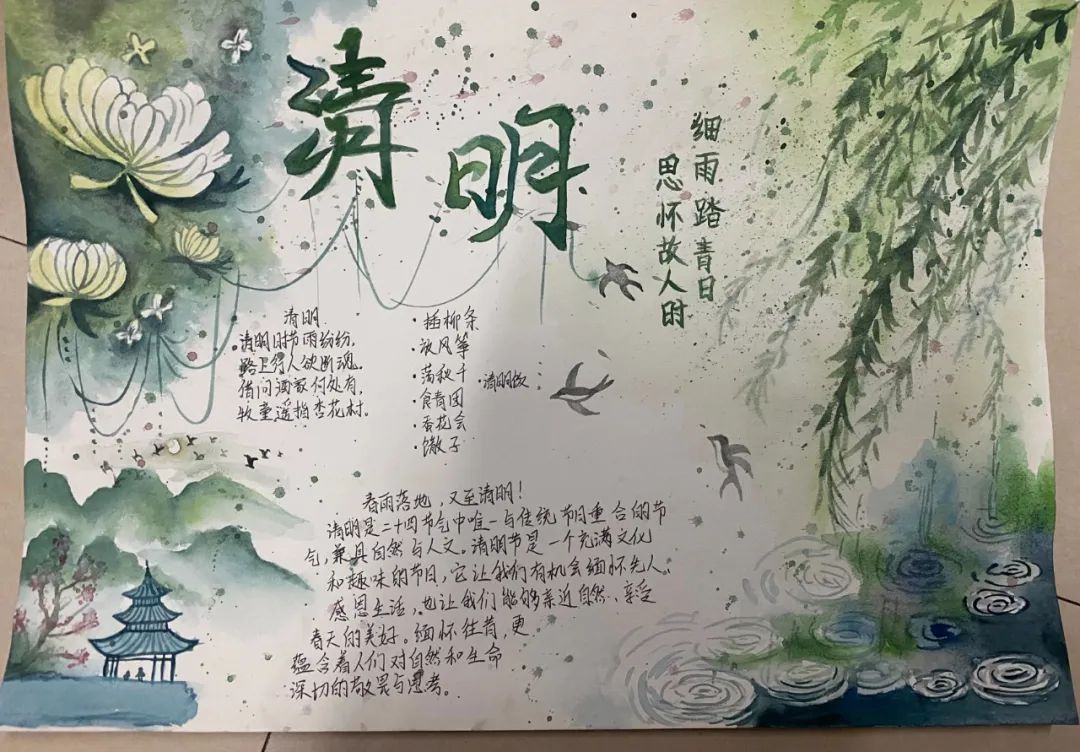 清明
细雨踏青日
思怀故人时
清明
清明时节雨纷纷,
路上行人欲断魂。
借问酒家何处有,
牧童遥指杏花村。
·插柳条
·放风筝
·荡秋千
·食青团
·蚕花会
·馓子
·清明做
春雨落地,又至清明!
清明是二十四节气中唯一与传统节日重合的节
气,兼具自然与人文。清明节是一个充满文化
和趣味的节日,它让我们有机会缅怀先人、
感恩生活,也让我们能够亲近自然、享受
春天的美好。缅怀往昔,更
蕴含着人们对自然和生命
深切的敬畏与思考。